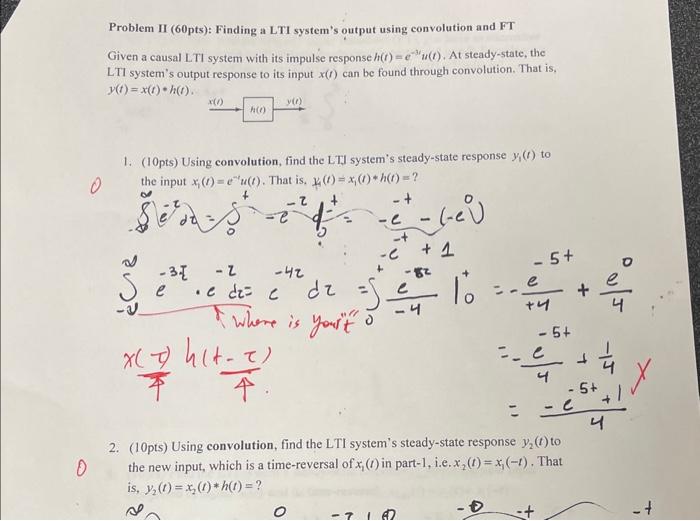 Problem II (60pts): Finding a LTI system's output using convolution and FT
Given a causal LTI system with its impulse response h(t) = e^{-3t}u(t). At steady-state, the
LTI system's output response to its input x(t) can be found through convolution. That is,
y(t) = x(t) * h(t).
x(t) h(t) y(t)
1. (10pts) Using convolution, find the LTI system's steady-state response y₁(t) to
0 the input x₁(t) = e^{-t}u(t). That is, y₁(t) = x₁(t) * h(t) = ?
-e^{-t} + 1
∫_{-∞}^{∞} e^{-3τ} · e^{-τ} dτ = e^{-4τ} dτ = ∫_0^t e^{-8τ}/-4 |_0^t = -e^{-5t}/+4 + e^0/4
where is your "t"
= -e^{-5t}/4 + 1/4
x(τ) h(t-τ)
= -e^{-5t}+1/4 X
2. (10pts) Using convolution, find the LTI system's steady-state response y₂(t) to
0 the new input, which is a time-reversal of x₁(t) in part-1, i.e. x₂(t) = x₁(-t). That
is, y₂(t) = x₂(t) * h(t) = ?